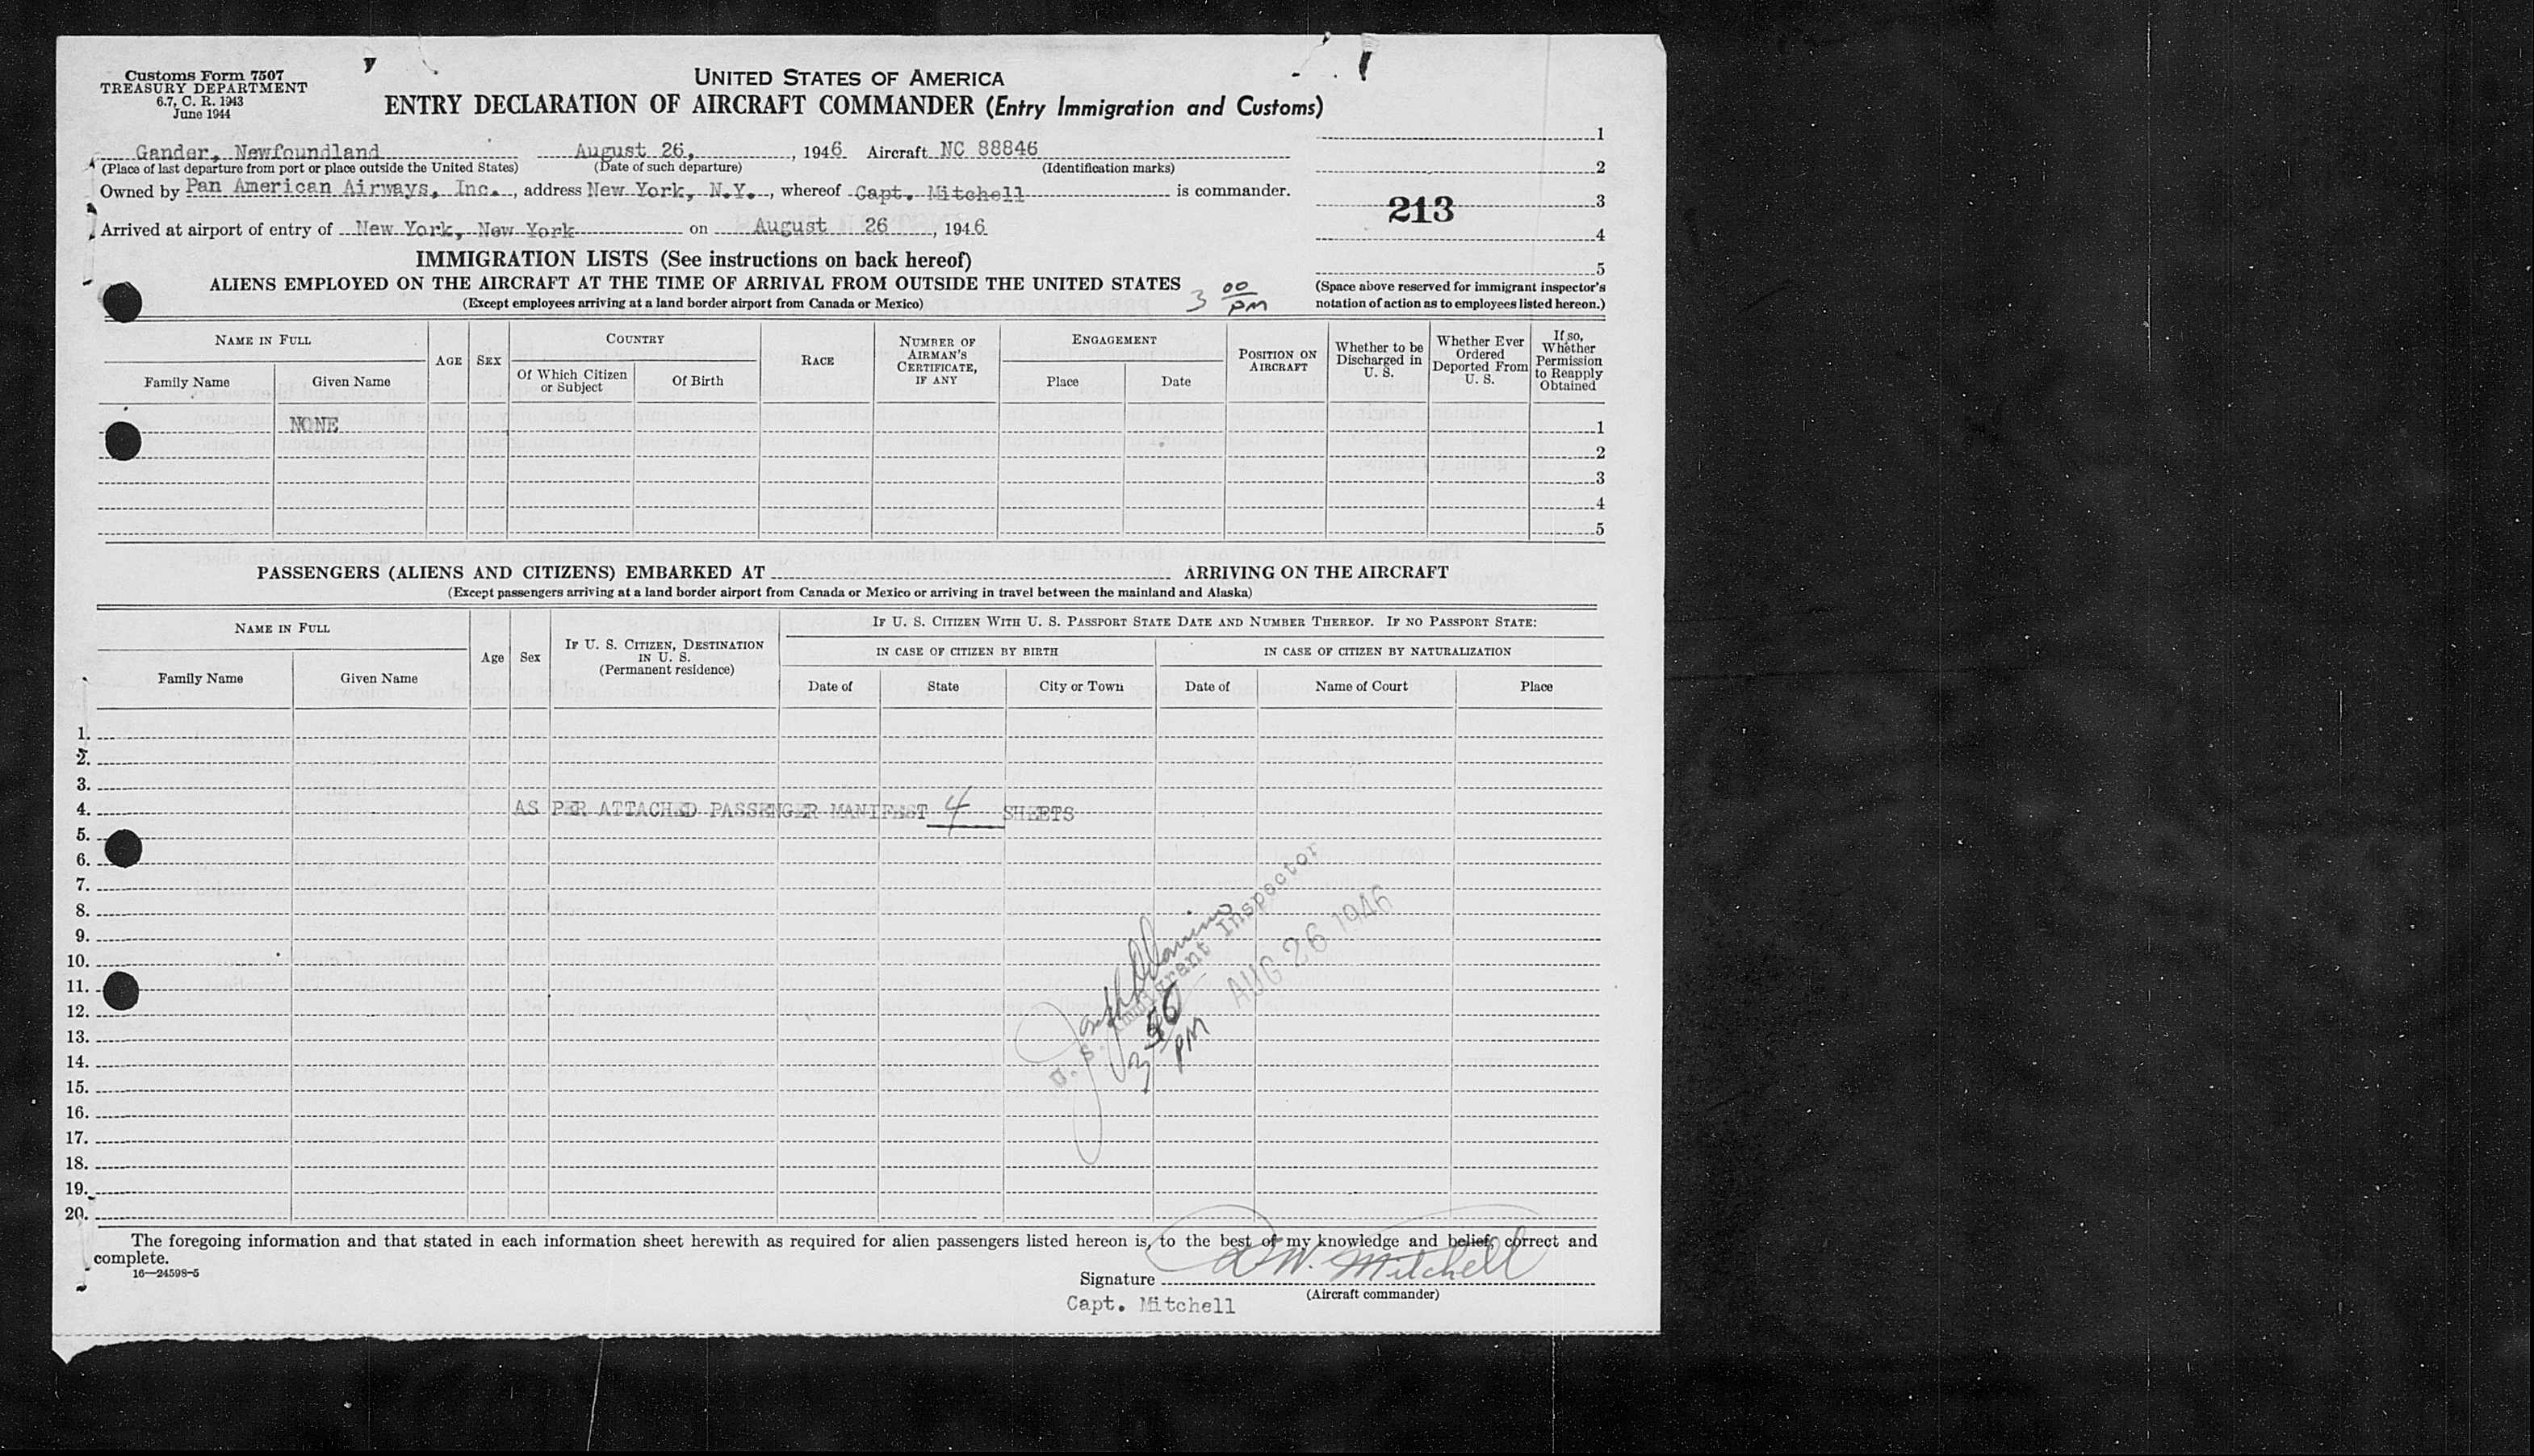 Customs Form 7507
TREASURY DEPARTMENT
6.7, C. R. 1943
June 1944
UNITED STATES OF AMERICA
ENTRY DECLARATION OF AIRCRAFT COMMANDER (Entry Immigration and Customs)
Gander, Newfoundland August 26, , 1946 Aircraft NC 88846
(Place of last departure from port or place outside the United States) (Date of such departure) (Identification marks)
Owned by Pan American Airways, Inc. , address New York, N.Y. , whereof Capt. Mitchell is commander.
Arrived at airport of entry of New York, New York on August 26 , 1946
1
2
3
213
4
5
(Space above reserved for immigrant inspector's
notation of action as to employees listed hereon.)
IMMIGRATION LISTS (See instructions on back hereof)
ALIENS EMPLOYED ON THE AIRCRAFT AT THE TIME OF ARRIVAL FROM OUTSIDE THE UNITED STATES
(Except employees arriving at a land border airport from Canada or Mexico)
3 00 PM
NAME IN FULL
Family Name Given Name
AGE SEX
COUNTRY
Of Which Citizen
or Subject
Of Birth
RACE
NUMBER OF
AIRMAN'S
CERTIFICATE,
IF ANY
ENGAGEMENT
Place Date
POSITION ON
AIRCRAFT
Whether to be
Discharged in
U. S.
Whether Ever
Ordered
Deported From
U. S.
If so,
Whether
Permission
to Reapply
Obtained
NONE 1
2
3
4
5
PASSENGERS (ALIENS AND CITIZENS) EMBARKED AT ARRIVING ON THE AIRCRAFT
(Except passengers arriving at a land border airport from Canada or Mexico or arriving in travel between the mainland and Alaska)
NAME IN FULL
Family Name Given Name
Age Sex
IF U. S. CITIZEN, DESTINATION
IN U. S.
(Permanent residence)
IF U. S. CITIZEN WITH U. S. PASSPORT STATE DATE AND NUMBER THEREOF. IF NO PASSPORT STATE:
IN CASE OF CITIZEN BY BIRTH IN CASE OF CITIZEN BY NATURALIZATION
Date of State City or Town Date of Name of Court Place
1.
2.
3.
4. AS PER ATTACHED PASSENGER MANIFEST 4 SHEETS
5.
6.
7.
8.
9.
10.
11.
12.
13.
14.
15.
16.
17.
18.
19.
20.
Joseph
U. S. Immigrant Inspector
AUG 26 1946
3 50 PM
The foregoing information and that stated in each information sheet herewith as required for alien passengers listed hereon is, to the best of my knowledge and belief, correct and
complete.
16—24598-5
Signature D W. Mitchell
(Aircraft commander)
Capt. Mitchell